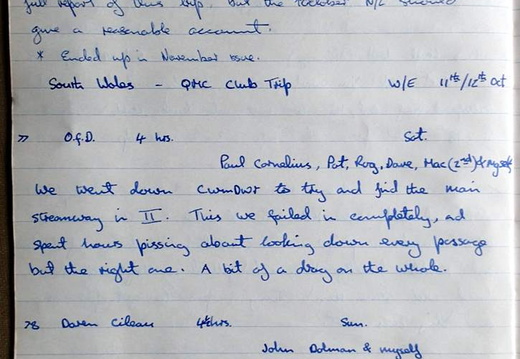 full report of this trip, but the October N/L should
give a reasonable account.
* Ended up in November issue.
South Wales - QMC Club Trip W/E 11th/12th Oct
77 O.f.D. 4 hrs. Sat.
Paul Cornelius, Pat, Rog, Dave, Mac (2nd) & Myself
We went down CwmDwr to try and find the main
streamway in II. This we failed in completely, and
spent hours pissing about looking down every passage
but the right one. A bit of a drag on the whole.
78 Daren Cilau 4½hrs. Sun.
John Dolman & myself